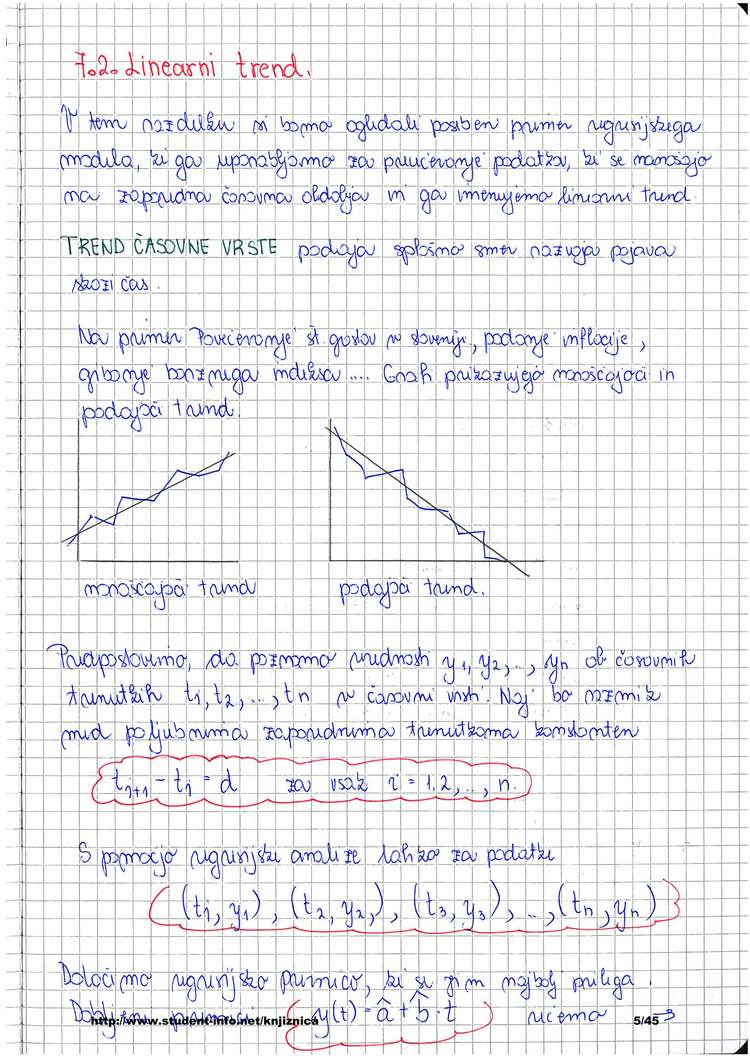 7.2. Linearni trend.
V tem razdelku si bomo ogledali poseben primer regresijskega
modela, ki ga uporabljamo za preučevanje podatkov, ki se nanašajo
na zaporedna časovna obdobja in ga imenujemo linearni trend.
TREND ČASOVNE VRSTE podaja splošno smer razvoja pojava
skozi čas.
Na primer Povečevanje št. gostov v sloveniji, padanje inflacije,
gibanje borznega indeksa .... Grafi prikazujejo naraščajoči in
padajoči trend.
naraščajoči trend
padajoči trend.
Predpostavimo, da poznamo vrednosti y1, y2, .., yn ob časovnih
trenutkih t1, t2, ..., tn v časovni vrsti. Naj bo razmik
med poljubnima zaporednima trenutkoma konstanten
ti+1 - ti = d za vsak i = 1, 2, .., n.
S pomočjo regresijske analize lahko za podatke
(t1, y1), (t2, y2,), (t3, y3), .., (tn, yn)
Določimo regresijsko premico, ki se jim najbolj prilega.
Dobljeni premici y(t) = â + b̂ · t rečemo
http://www.student-info.net/knjiznica
5/45